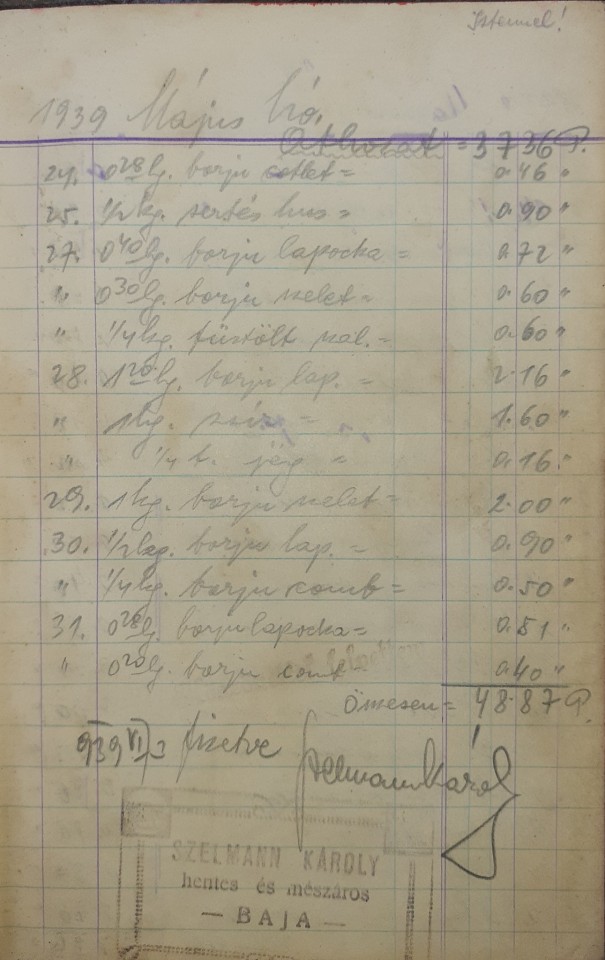 Istennel!
1939 Május hó.
Áthozat = 37 36 P.
24. 0 28 kg. borju cotlet = 0.46 "
25. 1/2 kg. sertés hus = 0.90 "
27. 0 40 kg. borju lapocka = 0.72 "
" 0 30 kg. borju szelet = 0.60 "
" 1/4 kg. füstölt szal. = 0.60 "
28. 1 20 kg. borju lap. = 2.16 "
" 1 kg. zsir = 1.60 "
" 1/4 t. jég = 0.16 "
29. 1 kg. borju szelet = 2.00 "
30. 1/2 kg. borju lap. = 0.90 "
" 1/4 kg. borju comb = 0.50 "
31. 0 28 kg. borju lapocka = 0.51 "
" 0 20 kg. borju comb = 0.40 "
Összesen = 48.87 P.
939 VI/3 fizetve Szelmann Károly
SZELMANN KÁROLY
hentes és mészáros
— BAJA —